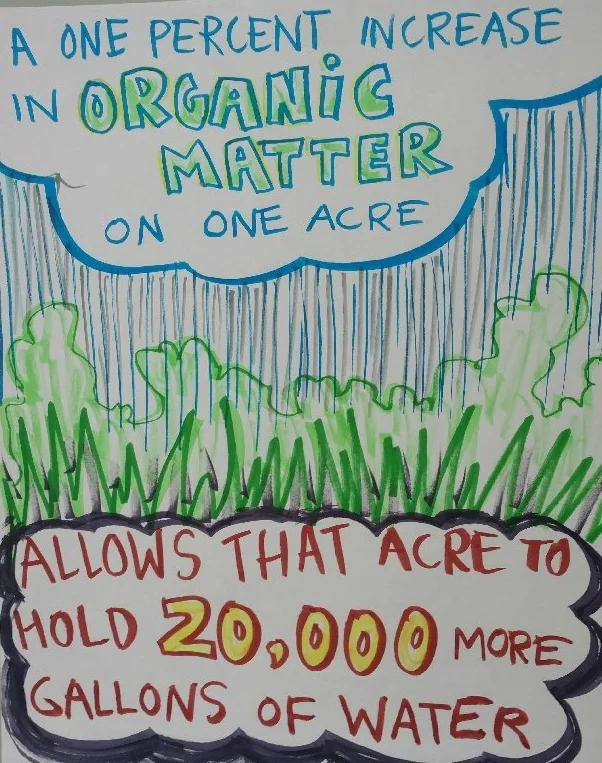 A ONE PERCENT INCREASE
IN ORGANiC
MATTER
ON ONE ACRE
ALLOWS THAT ACRE TO
HOLD 20,000 MORE
GALLONS OF WATER